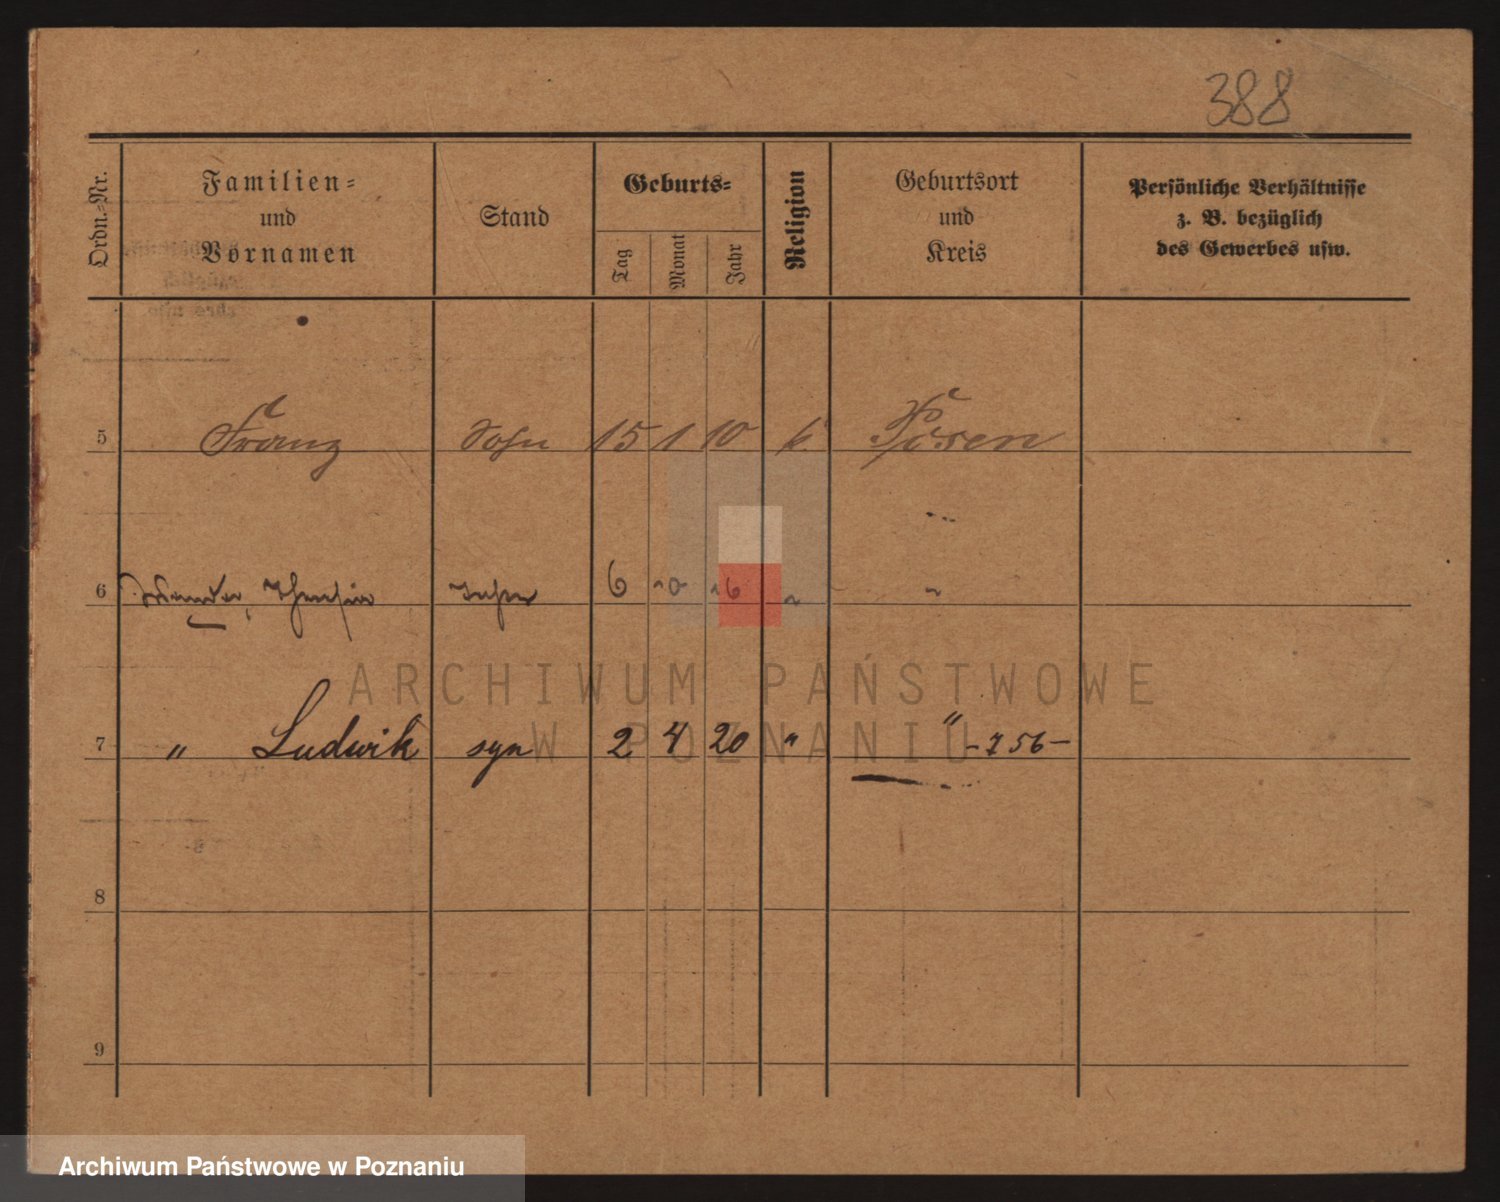 388
Ordn.-Nr.
Familien-
und
Vornamen
Stand
Geburts-
Tag
Monat
Jahr
Religion
Geburtsort
und
Kreis
Persönliche Verhältnisse
z. B. bezüglich
des Gewerbes usw.
5 Franz Sohn 15 1 10 k. Posen
6 6 "
7 " Ludwik syn 2 4 20 " " -756-
8
9
ARCHIWUM PAŃSTWOWE
W POZNANIU
Archiwum Państwowe w Poznaniu